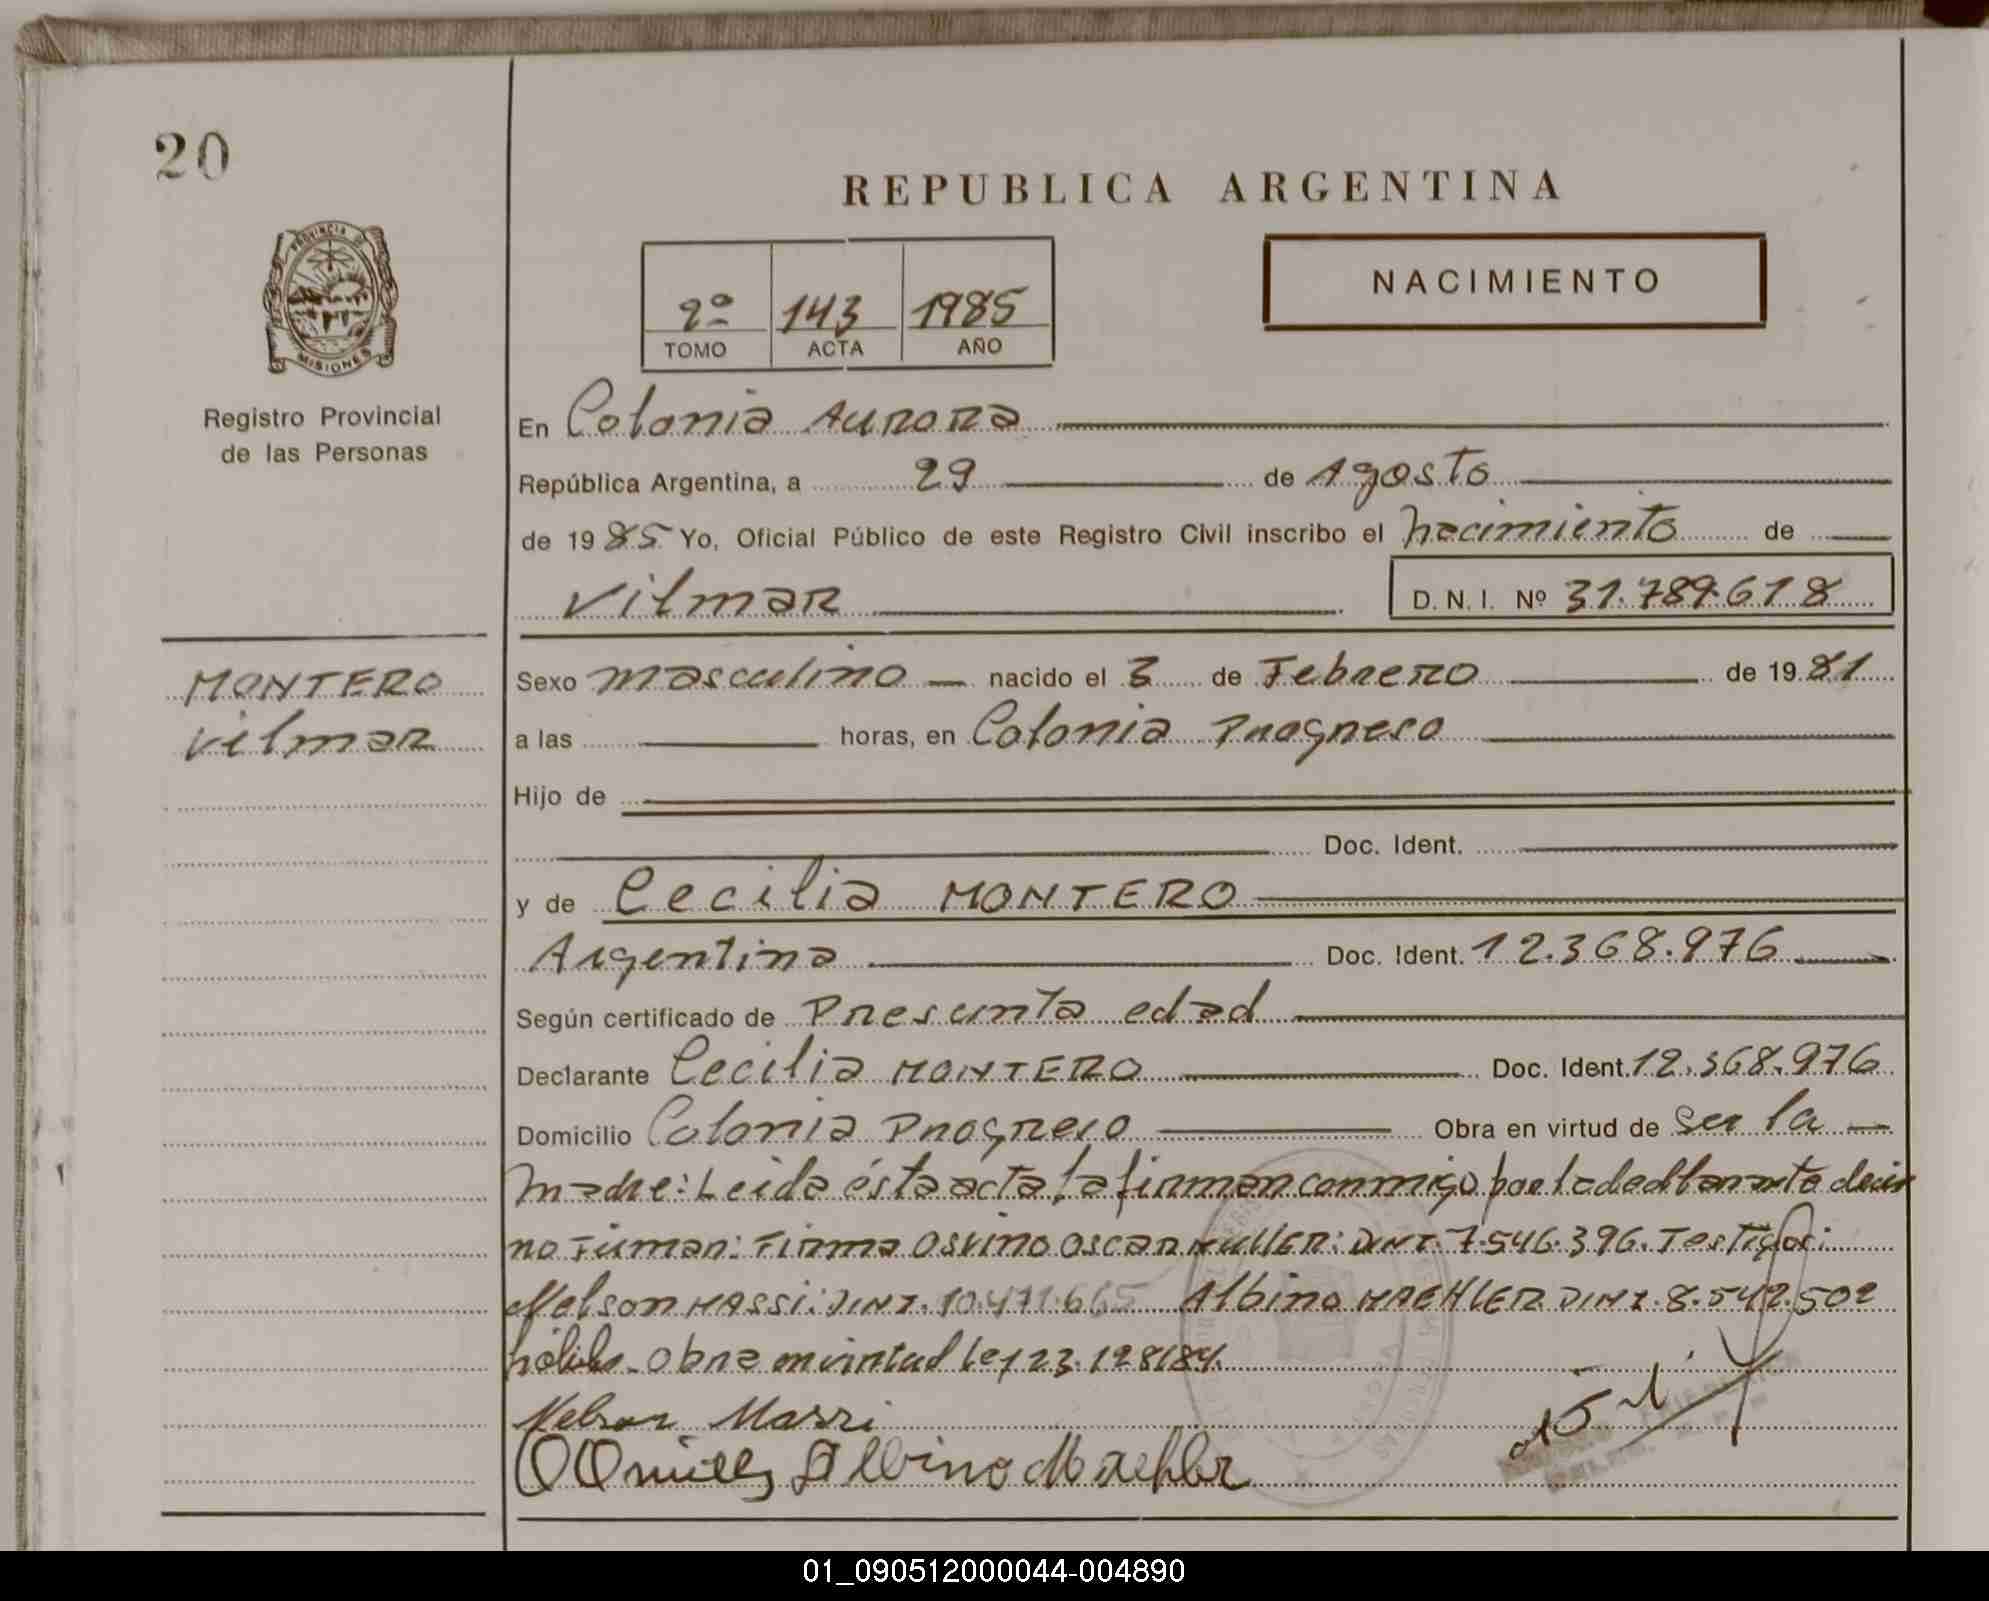 20
REPUBLICA ARGENTINA
PROVINCIA DE
MISIONES
Registro Provincial
de las Personas
2º 143 1985
TOMO ACTA AÑO
NACIMIENTO
En Colonia Aurora
República Argentina, a 29 de Agosto
de 1985 Yo, Oficial Público de este Registro Civil inscribo el nacimiento de
Vilmar D. N. I. Nº 31.789.618
MONTERO
Vilmar
Sexo masculino nacido el 3 de Febrero de 1981
a las horas, en Colonia Progreso
Hijo de
Doc. Ident.
y de Cecilia MONTERO
Argentina Doc. Ident. 12.368.976
Según certificado de Presunta edad
Declarante Cecilia MONTERO Doc. Ident. 12.368.976
Domicilio Colonia Progreso Obra en virtud de ser la
madre: Leida ésta acta la firman conmigo por la declarante decir
no firmar: Firma Osvino Oscar MULLER: DNI. 7.546.396. Testigos:
Nelson MASSI: DNI. 10.471.665 Albino MAEHLER DNI. 8.542.502
hábiles - Obra en virtud Ley 23.128/84.
Nelson Massi
Albino Maehler
01_090512000044-004890